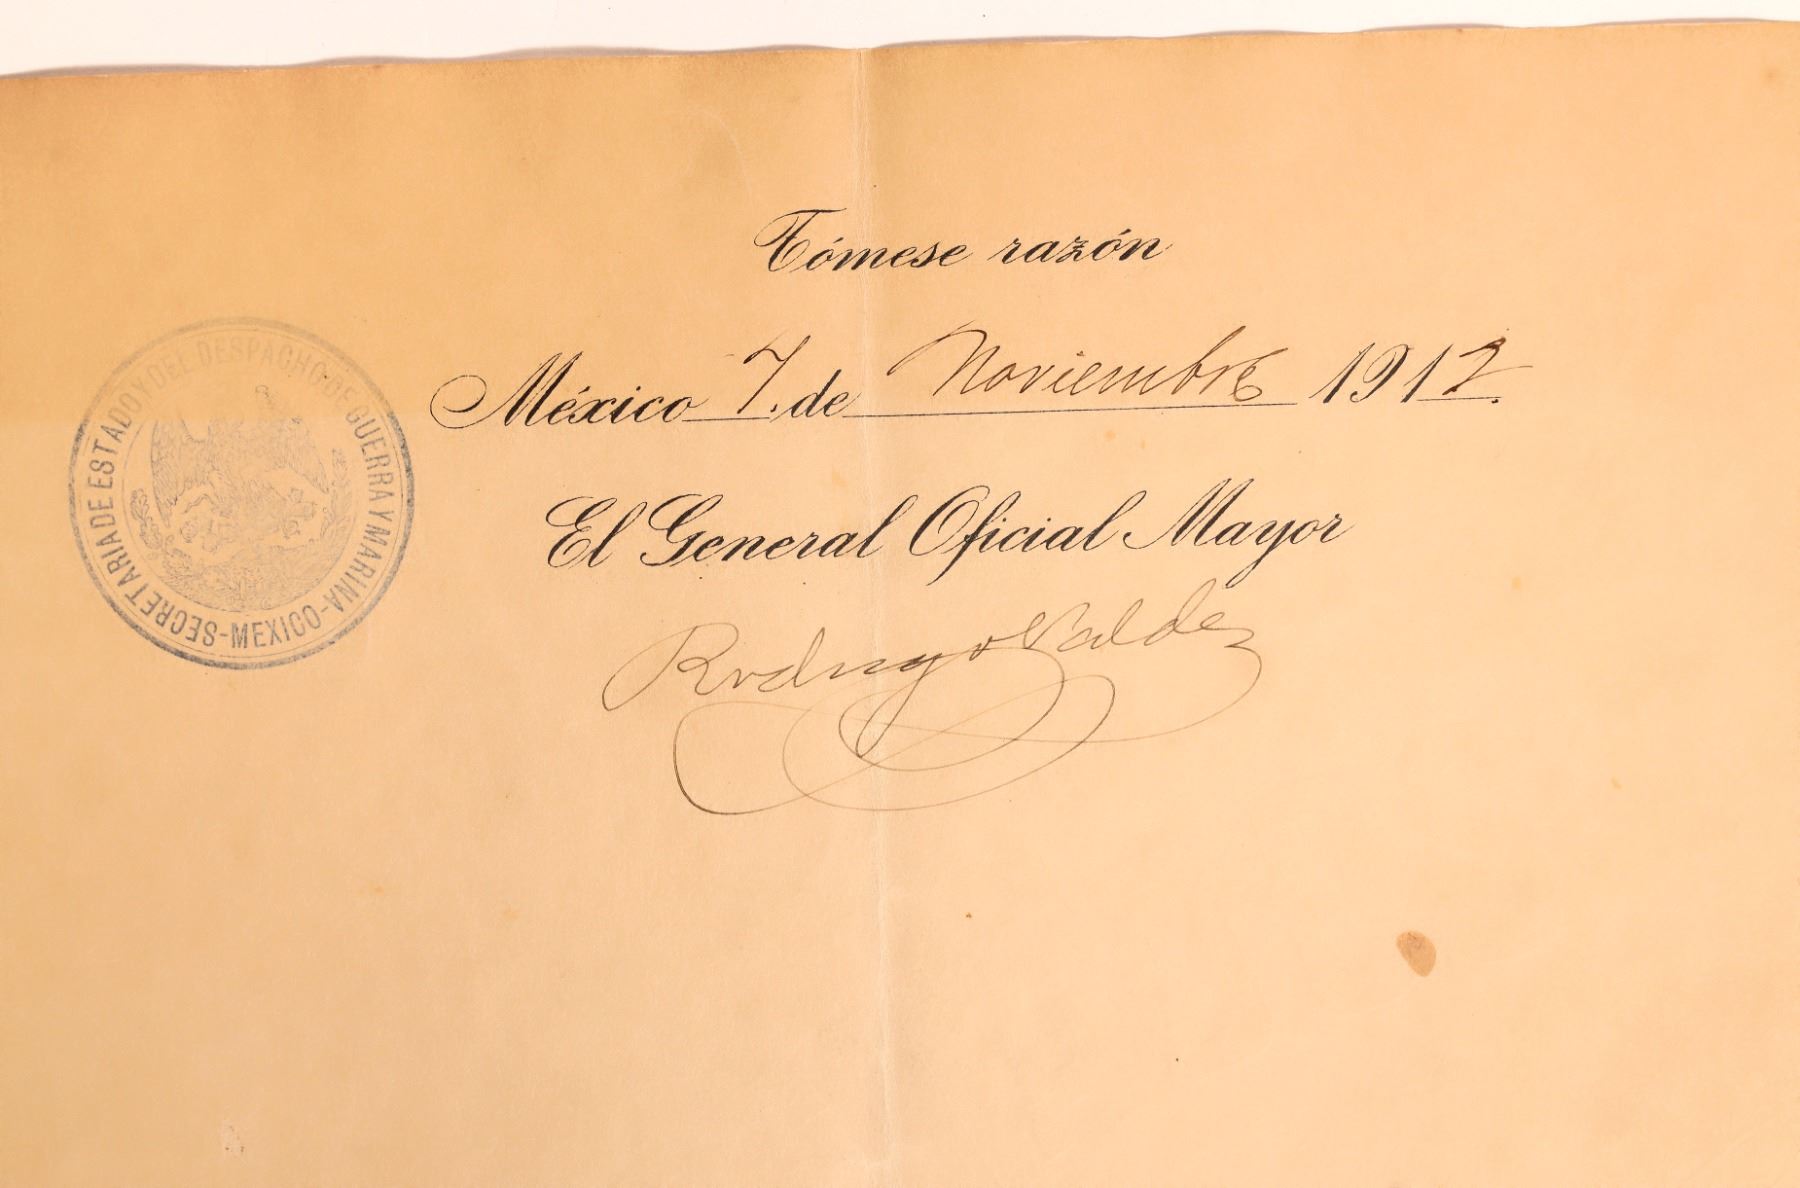 Tómese razón
México 7. de Noviembre 1912.
El General Oficial Mayor
Rodrigo Valdéz
SECRETARIA DE ESTADO Y DEL DESPACHO DE GUERRA Y MARINA-
-MEXICO-